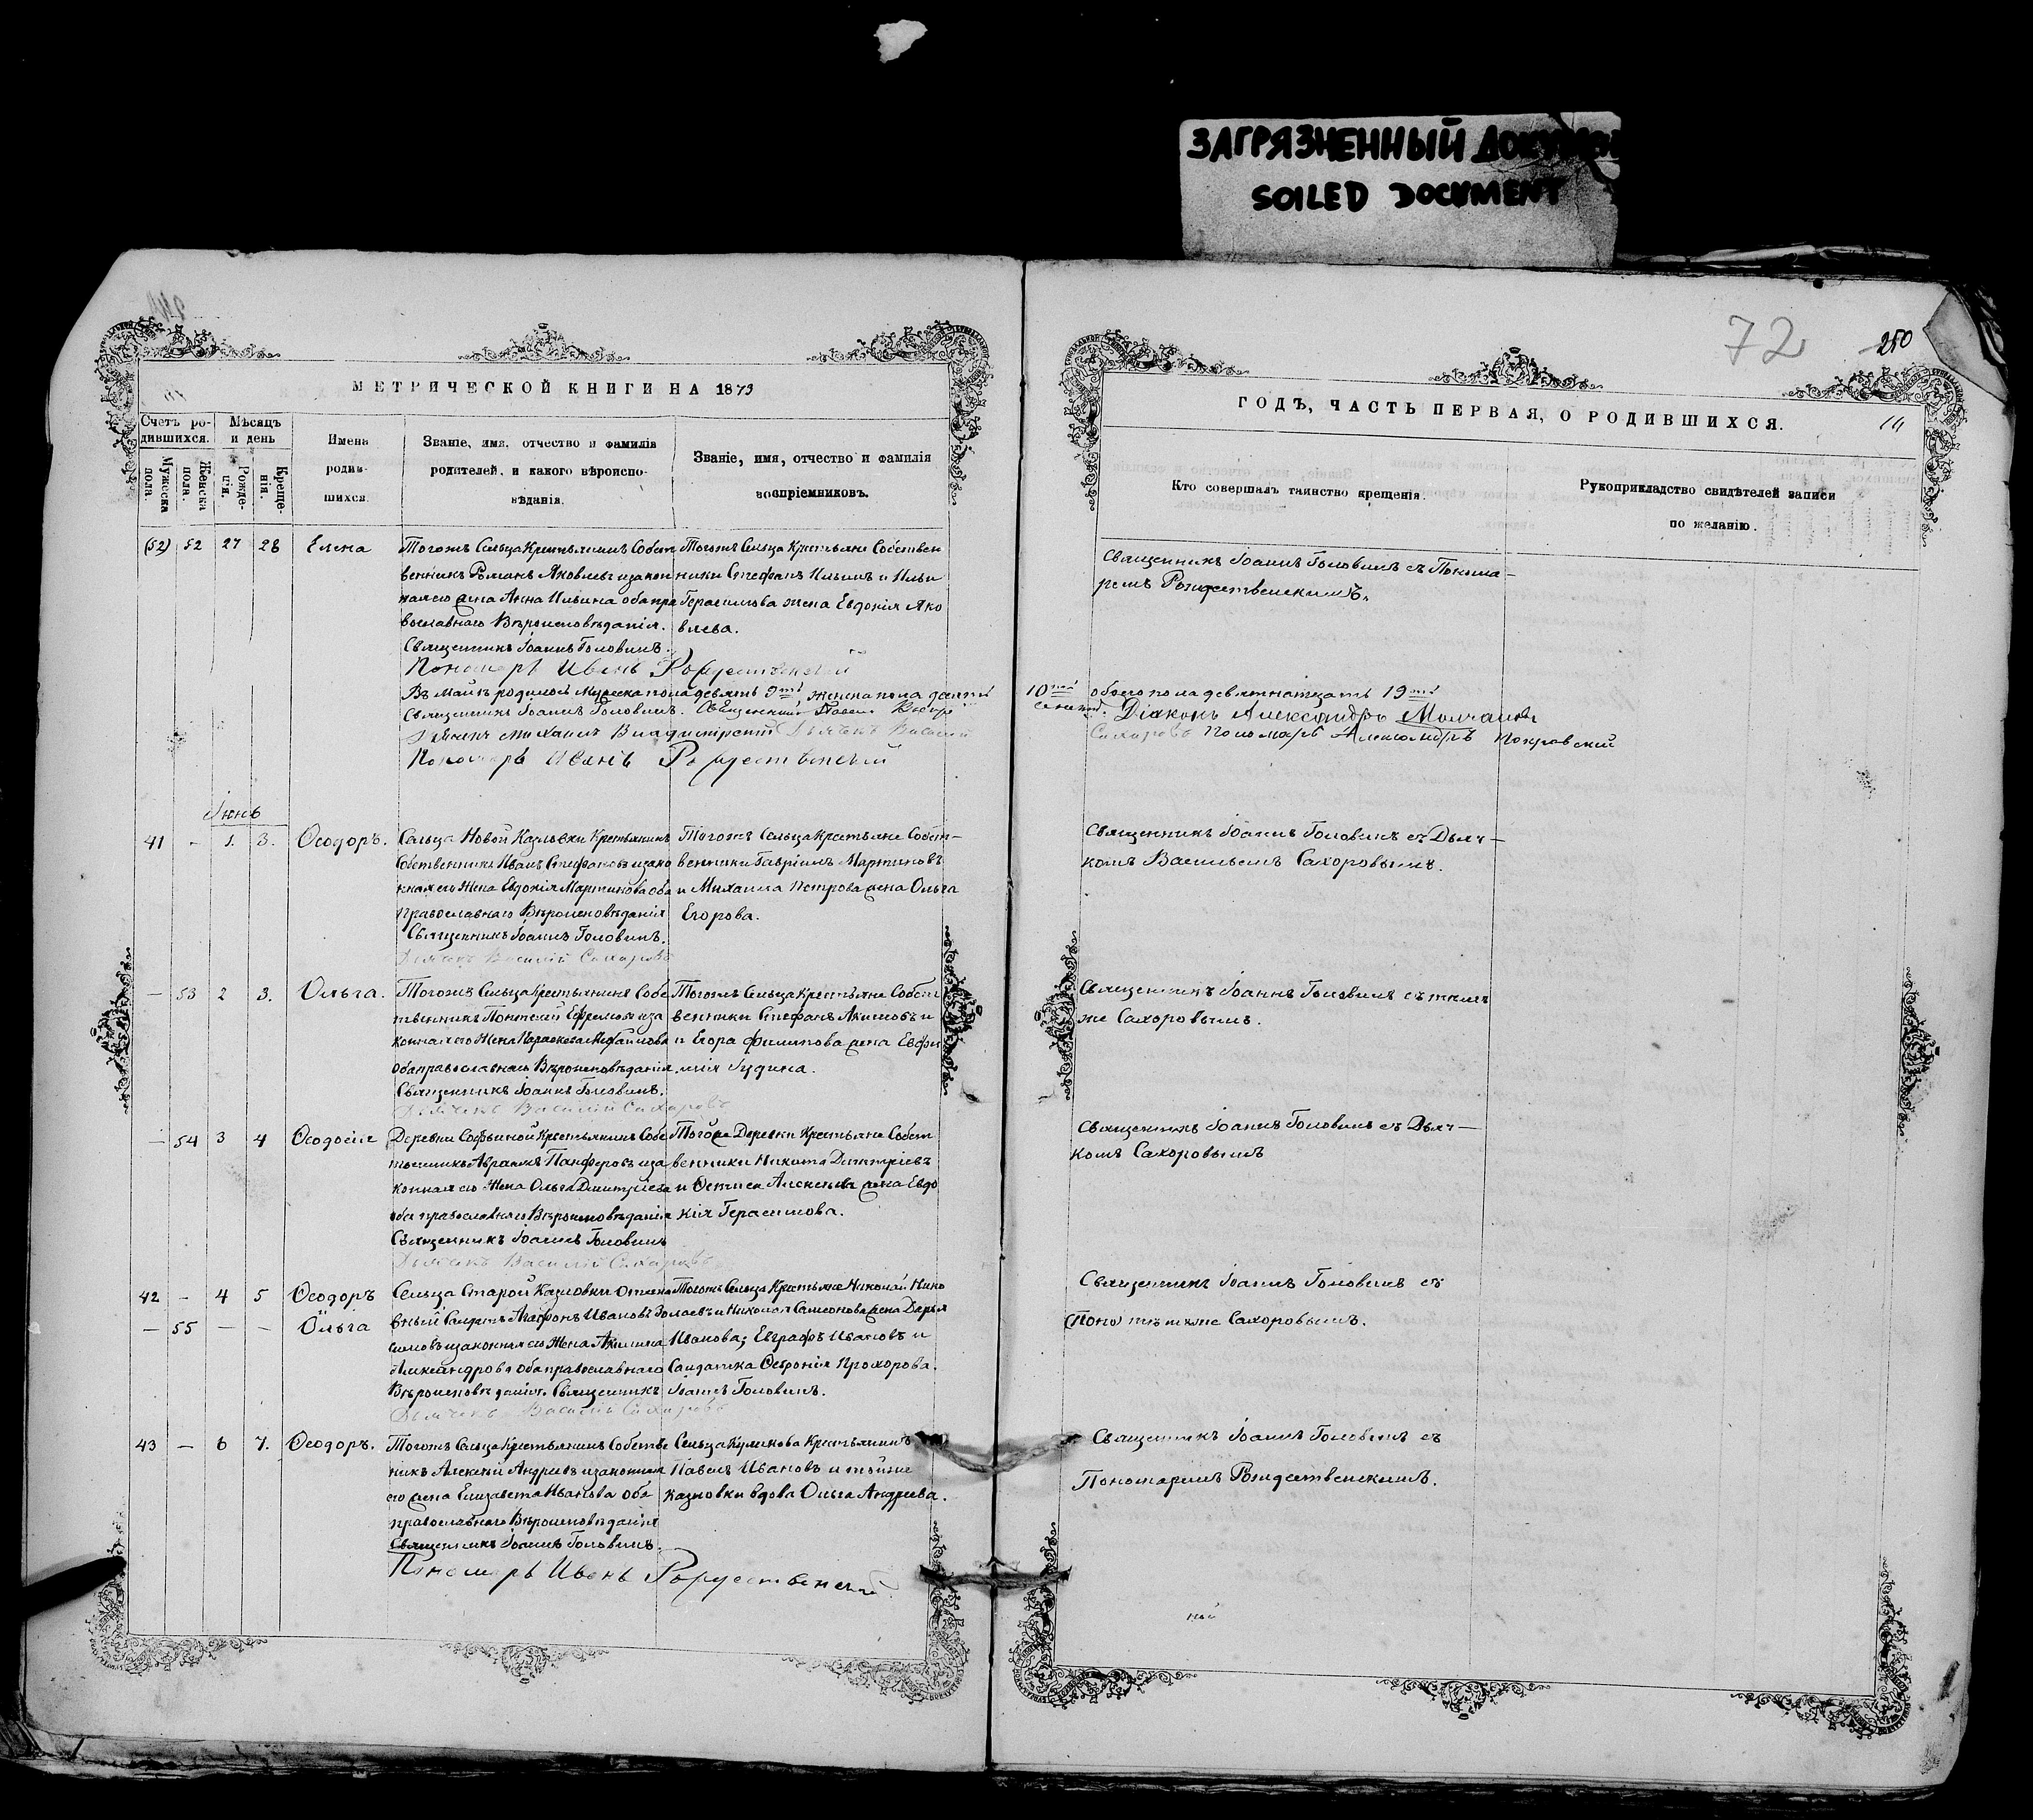 ЗАГРЯЗНЕННЫЙ
SOILED DOCUMENT
72
250
МЕТРИЧЕСКОЙ КНИГИ НА 1873
ГОДЪ, ЧАСТЬ ПЕРВАЯ, О РОДИВШИХСЯ.
Счетъ ро-
дившихся.
Мужеска
пола.
Женска
пола.
Мѣсяцъ
и день
Рожде-
нія.
Креще-
нія.
Имена
родив-
шихся.
Званіе, имя, отчество и фамилія
родителей, и какого вѣроиспо-
вѣданія.
Званіе, имя, отчество и фамилія
воспріемниковъ.
Кто совершалъ таинство крещенія.
Рукоприкладство свидѣтелей записи
по желанію.
(52) 52 27 28 Елена
Тогожъ Сельца Крестьянинъ Собст
венникъ Романъ Яковлевъ и закон
ная его жена Анна Ильина оба пра
вославнаго Вѣроисповѣданія.
Священникъ Іоаннъ Головинъ.
Пономарь Иванъ Рождественскій
Тогожъ Сельца Крестьяне Собствен
ники Стефанъ Ильинъ и Ильи
Герасимова жена Евдокія Яко
влева.
Священникъ Іоаннъ Головинъ съ Понома-
ремъ Рождественскимъ.
Въ Маѣ родилось Мужеска пола девять 9ть, Женска пола десять
10ть обоего пола девятнатцать 19ть
Священникъ Іоаннъ Головинъ. Священникъ Павелъ
Діаконъ Александръ Молчановъ
Дьячекъ Василій
Сахаровъ Пономарь Александръ Покровскій
Пономарь Иванъ Рождественскій
Іюнь
41 - 1. 3. Ѳеодоръ.
Сельца Новой Казловки Крестьянинъ
Собственникъ Иванъ Стефановъ и зако
нная его Жена Евдокія Мартинова оба
православнаго Вѣроисповѣданія
Священникъ Іоаннъ Головинъ.
Дьячекъ Василій Сахаровъ
Тогожъ Сельца Крестьяне Собст-
венники Гавріилъ Мартиновъ
и Михаила Петрова жена Ольга
Егорова.
Священникъ Іоаннъ Головинъ съ Дьяч-
комъ Васильемъ Сахоровымъ.
— 53 2 3. Ольга.
Тогожъ Сельца Крестьянинъ Собс
твенникъ Ефремовъ и за
конная его Жена Параскева
оба православнаго Вѣроисповѣданія.
Священникъ Іоаннъ Головинъ.
Дьячекъ Василій Сахаровъ
Тогожъ Сельца Крестьяне Собст
венники Стефанъ Акимовъ и
и Егора Филипова жена Евфи
мія Іудина.
Священникъ Іоаннъ Головинъ съ тѣмъ
же Сахоровымъ.
— 54 3 4 Ѳеодосія
Деревни Софьиной Крестьянинъ Собс
твенникъ Авраамъ Панферовъ и за
конная его Жена Ольга Димитріева
оба православнаго Вѣроисповѣданія
Священникъ Іоаннъ Головинъ
Дьячекъ Василій Сахаровъ
Тойже Деревни Крестьяне Собст
венники Никита Димитріевъ
и Алексѣева жена Евдо
кія Герасимова.
Священникъ Іоаннъ Головинъ съ Дьяч-
комъ Сахоровымъ
42 — 4 5 Ѳеодоръ
— 55 — — Ольга
Сельца Старой Казловки
Агафонъ Ивановъ
и законная его Жена Акилина
Александрова оба православнаго
Вѣроисповѣданія. Священникъ Іоаннъ Головинъ.
Дьячекъ Василій Сахаровъ
Тогожъ Сельца Крестьяне Николай Нико
лаевъ и Николая Самсонова жена Дарья
Иванова; Евграфъ Ивановъ и
Салдатка Ѳевронія Прохорова.
Священникъ Іоаннъ Головинъ съ
(Поно) тѣмже Сахоровымъ.
43 — 6 7. Ѳеодоръ.
Тогожъ Сельца Крестьянинъ Собстве
нникъ Алексѣй Андреевъ и законная
его жена Елизавета Иванова оба
православнаго Вѣроисповѣданія
Священникъ Іоаннъ Головинъ.
Пономарь Иванъ Рождественскій
Сельца Куликова Крестьянинъ
Павелъ Ивановъ и тойже
Казловки вдова Ольга Андреева.
Священникъ Іоаннъ Головинъ съ
Пономаремъ Рождественскимъ.